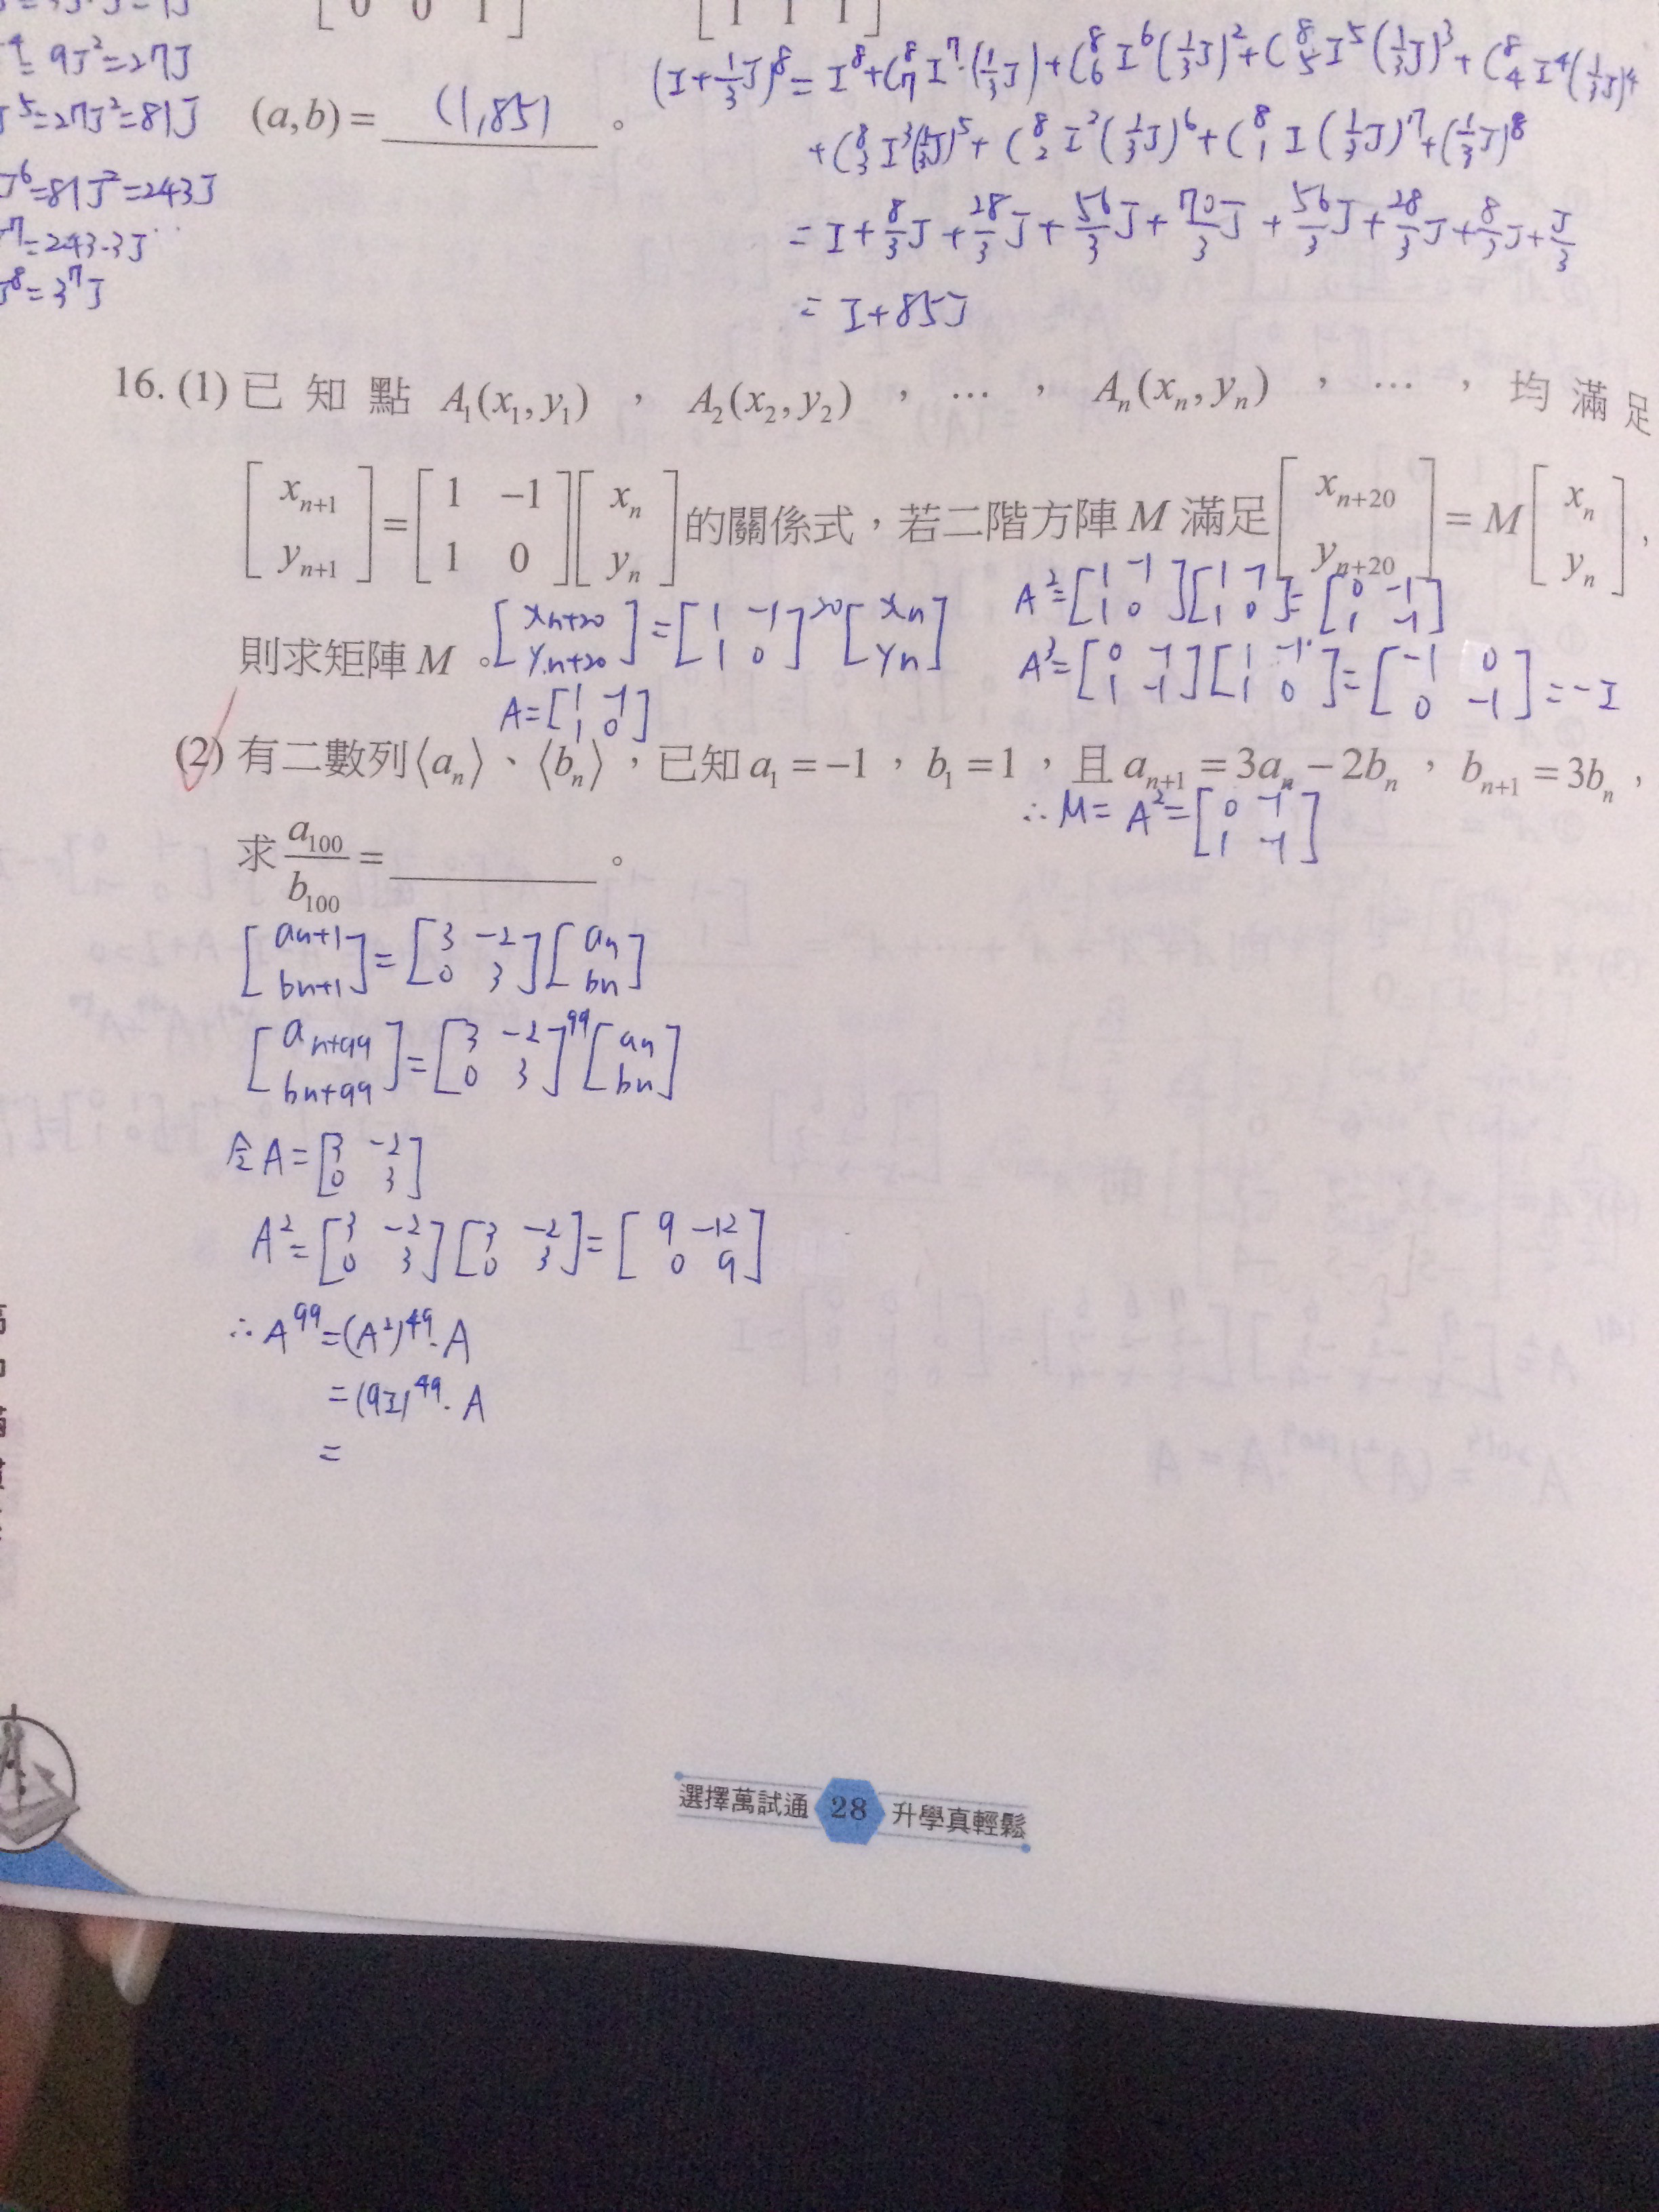 ⁴= 9J²=27J
J⁵=27J²=81J
J⁶=81J²=243J
⁷=243·3J
J⁸=3⁷J
[0 0 1] [1 1 1]
(a,b) = (1,85) 。
(I+1/3J)⁸= I⁸+C⁸₇I⁷·(1/3J)+C⁸₆I⁶(1/3J)²+C⁸₅I⁵(1/3J)³+C⁸₄I⁴(1/3J)⁴
+C⁸₃I³(1/3J)⁵+C⁸₂I²(1/3J)⁶+C⁸₁I(1/3J)⁷+(1/3J)⁸
=I+8/3J+28/3J+56/3J+70/3J+56/3J+28/3J+8/3J+J/3
= I+85J
16. (1) 已知點 A₁(x₁,y₁) , A₂(x₂,y₂) , … , Aₙ(xₙ,yₙ) , … , 均滿足
[xₙ₊₁; yₙ₊₁]=[1 −1; 1 0][xₙ; yₙ]的關係式,若二階方陣 M 滿足[xₙ₊₂₀; yₙ₊₂₀]=M[xₙ; yₙ],
則求矩陣 M 。
[xn+20; yn+20]=[1 -1; 1 0]²⁰[xn; yn]
A=[1 -1; 1 0]
A²=[1 -1; 1 0][1 -1; 1 0]=[0 -1; 1 -1]
A³=[0 -1; 1 -1][1 -1; 1 0]=[-1 0; 0 -1]=-I
∴M= A²=[0 -1; 1 -1]
(2) 有二數列⟨aₙ⟩、⟨bₙ⟩,已知 a₁ = −1 , b₁ = 1 , 且 aₙ₊₁ = 3aₙ − 2bₙ , bₙ₊₁ = 3bₙ ,
求 a₁₀₀/b₁₀₀ = 。
[an+1; bn+1]=[3 -2; 0 3][an; bn]
[an+99; bn+99]=[3 -2; 0 3]⁹⁹[an; bn]
令A=[3 -2; 0 3]
A²=[3 -2; 0 3][3 -2; 0 3]=[9 -12; 0 9]
∴A⁹⁹=(A²)⁴⁹·A
=(9I)⁴⁹·A
=
選擇萬試通 28 升學真輕鬆